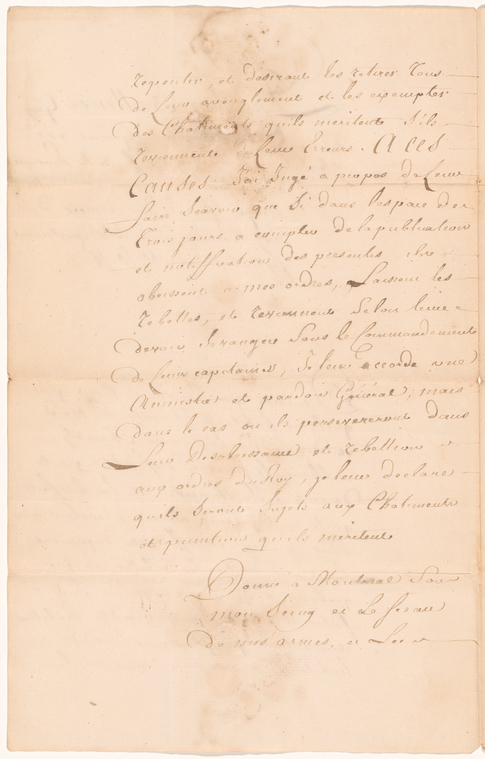 repentir, et desirant les retirer Tous
de Leur aveuglement et les exempter
des Chatiments quils meritent S'ils
reviennent Leurs Erreurs. A Ces
Causes Jai Jugé a propos de Leur
faire Scavoir que Si dans lespace de
Trois jours a compter de la publication
et notiffication des presentes ils
obeissent a mes ordres, Laissent les
Rebelles, et reviennent Selon leur
devoir Se ranger Sous le Commandement
de Leurs capitaines, Je leur accorde une
Amnistie et pardon Général, mais
dans le cas ou ils persevereront dans
Leur Desobeissance et rebellion
aux ordres du Roy, je leur declare
quils Seront Sujets aux Chatiments
et punitions quils meritent
Donné a Montreal Sous
mon Seing et Le Sceau
de mes armes, et